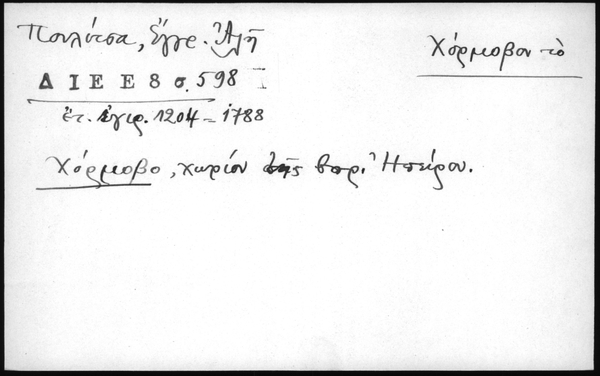 Πουλίτσα, Ἔγγρ. Ἀλῆ
Χόρμοβον τὸ
ΔΙΕΕ 8 σ. 598
ἔτ. ἐγιρ. 1204 = 1788
Χόρμοβο, χωρίον τῆς βορ. Ἠπείρου.